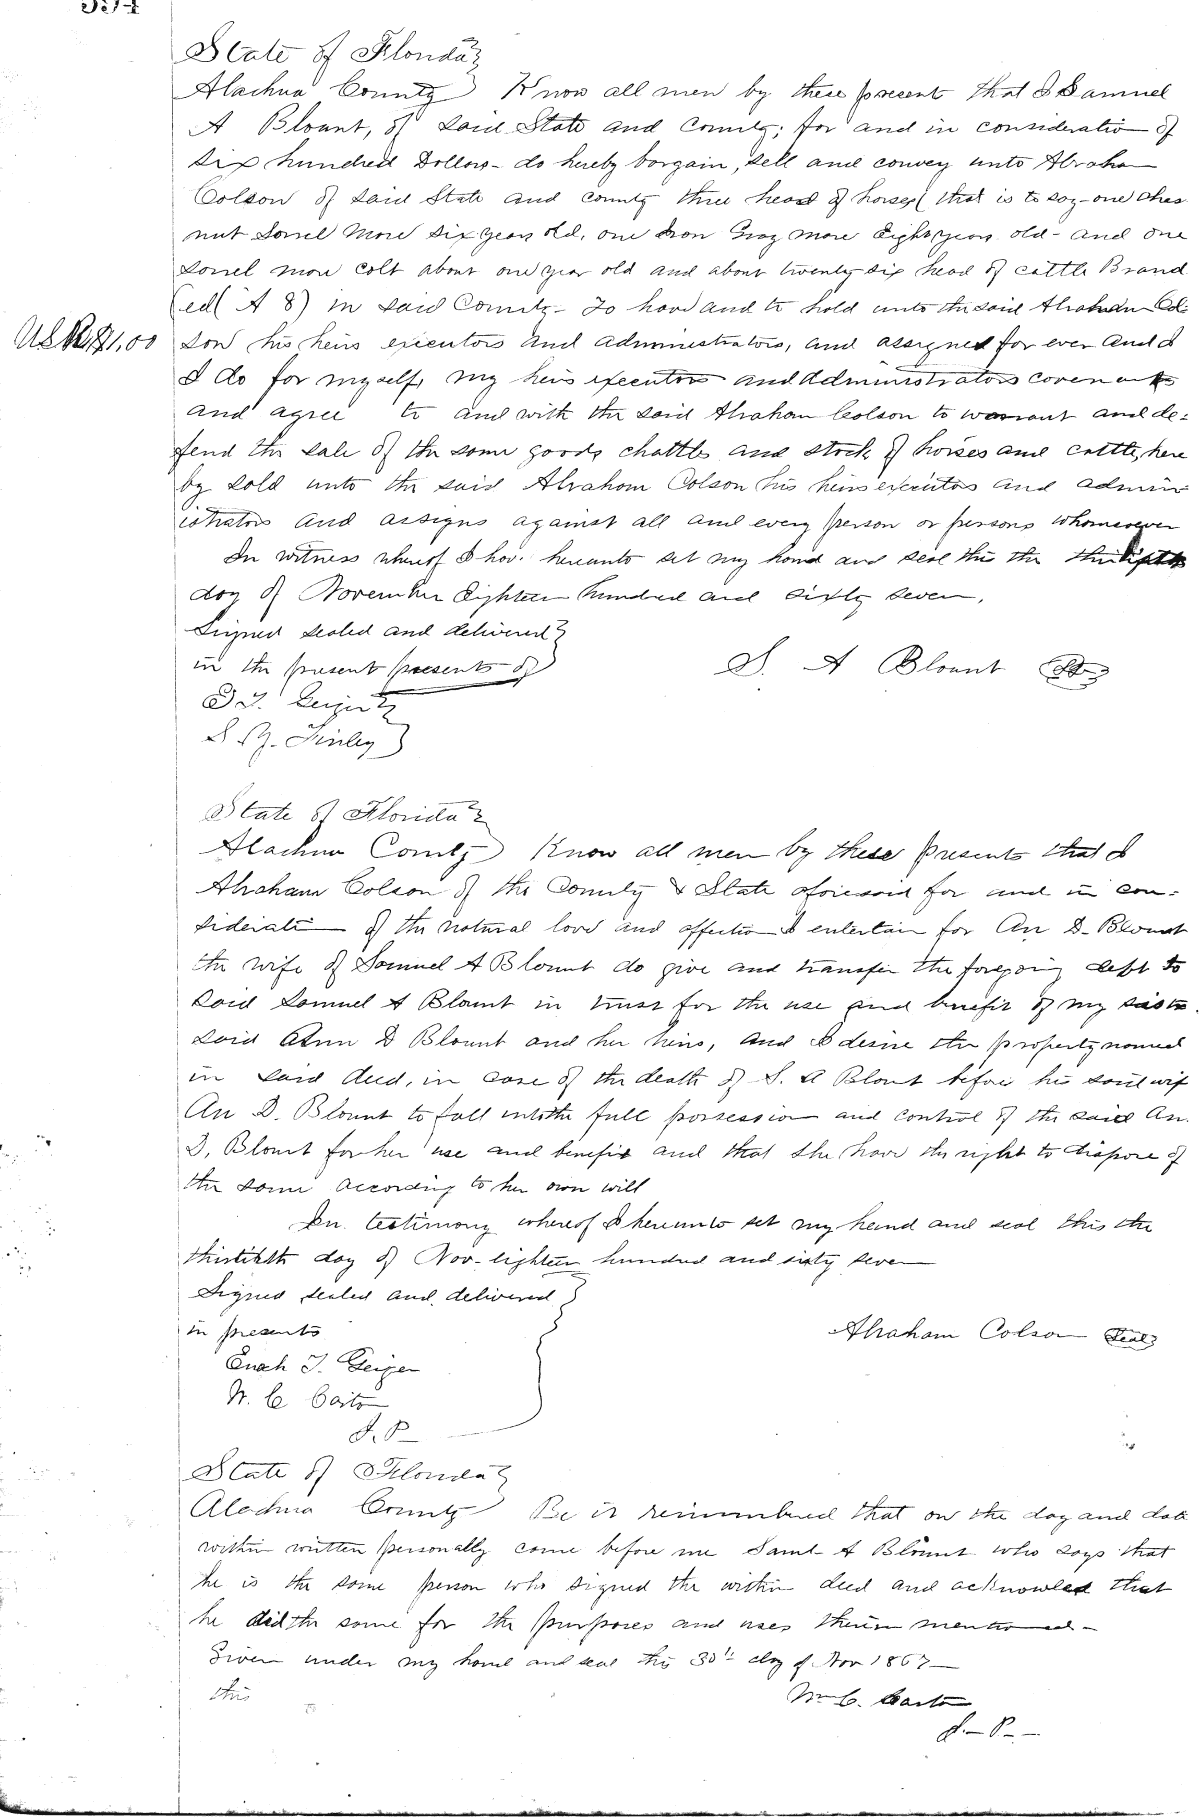 State of Florida
Alachua County Know all men by these present that I Samuel
A Blount, of said State and County; for and in consideratio of
six hundred Dollors - do hereby bargain, sell and convey unto Abraha
Colson of said State and county three head of horses ( that is to say - one ches
nut Sorrel Mare six years old, one Iron Gray mare Eight years old - and one
sorrel mare colt about one year old and about twenty six head of cattle Brand
ed ( A 8 ) in said County - To have and to hold unto the said Abraham Col-
U S R $1.00 son his heirs executors and administrators, and assigned for ever and I
I do for myself, my heirs executors and administrators covenants
and agree to and with the said Abraham Colson to warrant and de=
fend the sale of the same goods chattles and stock of horses and cattle, here
by sold unto the said Abraham Colson his heirs executors and admin
istrators and assigns against all and every person or persons whomsoever
In witness whereof I hav. hereunto set my hand and seal this the
day of November Eighteen hundred and sixty seven.
Signed sealed and delivered
in the present presents of
S. A Blount
Geiger
Finley
State of Florida
Alachua County Know all men by these presents that I
Abraham Colson of the County & State aforesaid for and in con=
sideratin of the natural love and affection I entertain for An D. Blount
the wife of Samuel A Blount do give and transfer the foregoing deft to
said Samuel A Blount in trust for the use and benefit of my siste
said Ann D Blount and her heirs, and I desire the property named
in said deed, in case of the death of S. A Blount before his said wif
An D. Blount to fall into the full possession and control of the said An.
D, Blount for her use and benefit and that she have the right to dispose of
the same according to her own will
In testimony whereof I hereunto set my hand and seal this the
day of Nov- eighteen hundred and sixty seven
Signed sealed and delivered
in presents
Abraham Colson Seal
Enoch J. Geiger
W. C Carto
J. P
State of Florida
Alachua County Be it remembered that on the day and date
within written personally came before me Saml A Blount who says that
he is the same person who signed the within deed and acknowled that
he did the same for the purposes and uses therein mentioned -
Given under my hand and seal this 30th day of Nov 1867
this
Wm C. Carto
J. - P. -